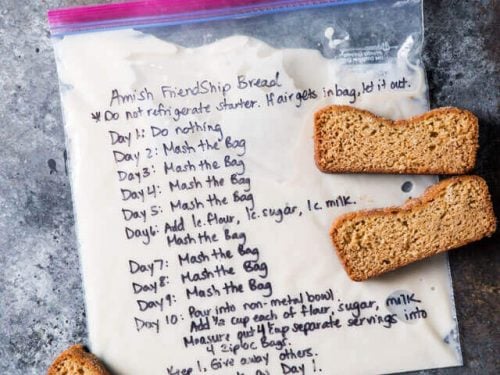 Amish FriendShip Bread
* Do not refrigerate starter. If air gets in bag, let it out.
Day 1: Do nothing
Day 2: Mash the Bag
Day 3: Mash the Bag
Day 4: Mash the Bag
Day 5: Mash the Bag
Day 6: Add 1c. flour, 1c. sugar, 1c. milk.
Mash the Bag
Day 7: Mash the Bag
Day 8: Mash the Bag
Day 9: Mash the Bag
Day 10: Pour into non-metal bowl.
Add cup each of flour, sugar, milk
Measure out 4 separate servings into
4 ziploc Bags.
Keep 1. Give away others.
Day 1.